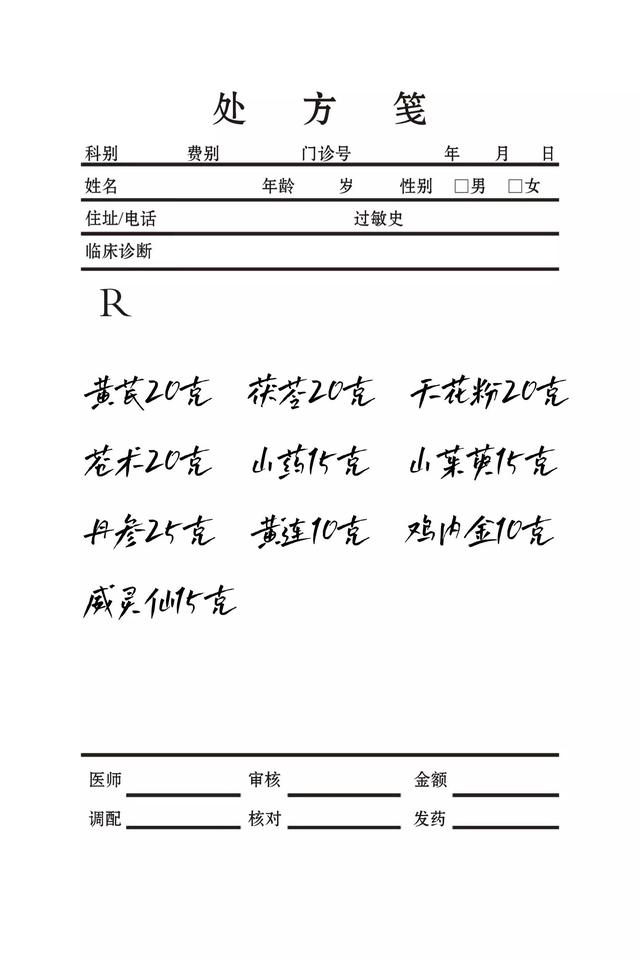 处方笺
科别 费别 门诊号 年 月 日
姓名 年龄 岁 性别 □男 □女
住址/电话 过敏史
临床诊断
R
黄芪20克 茯苓20克 天花粉20克
苍术20克 山药15克 山茱萸15克
丹参25克 黄连10克 鸡内金10克
威灵仙15克
医师 审核 金额
调配 核对 发药